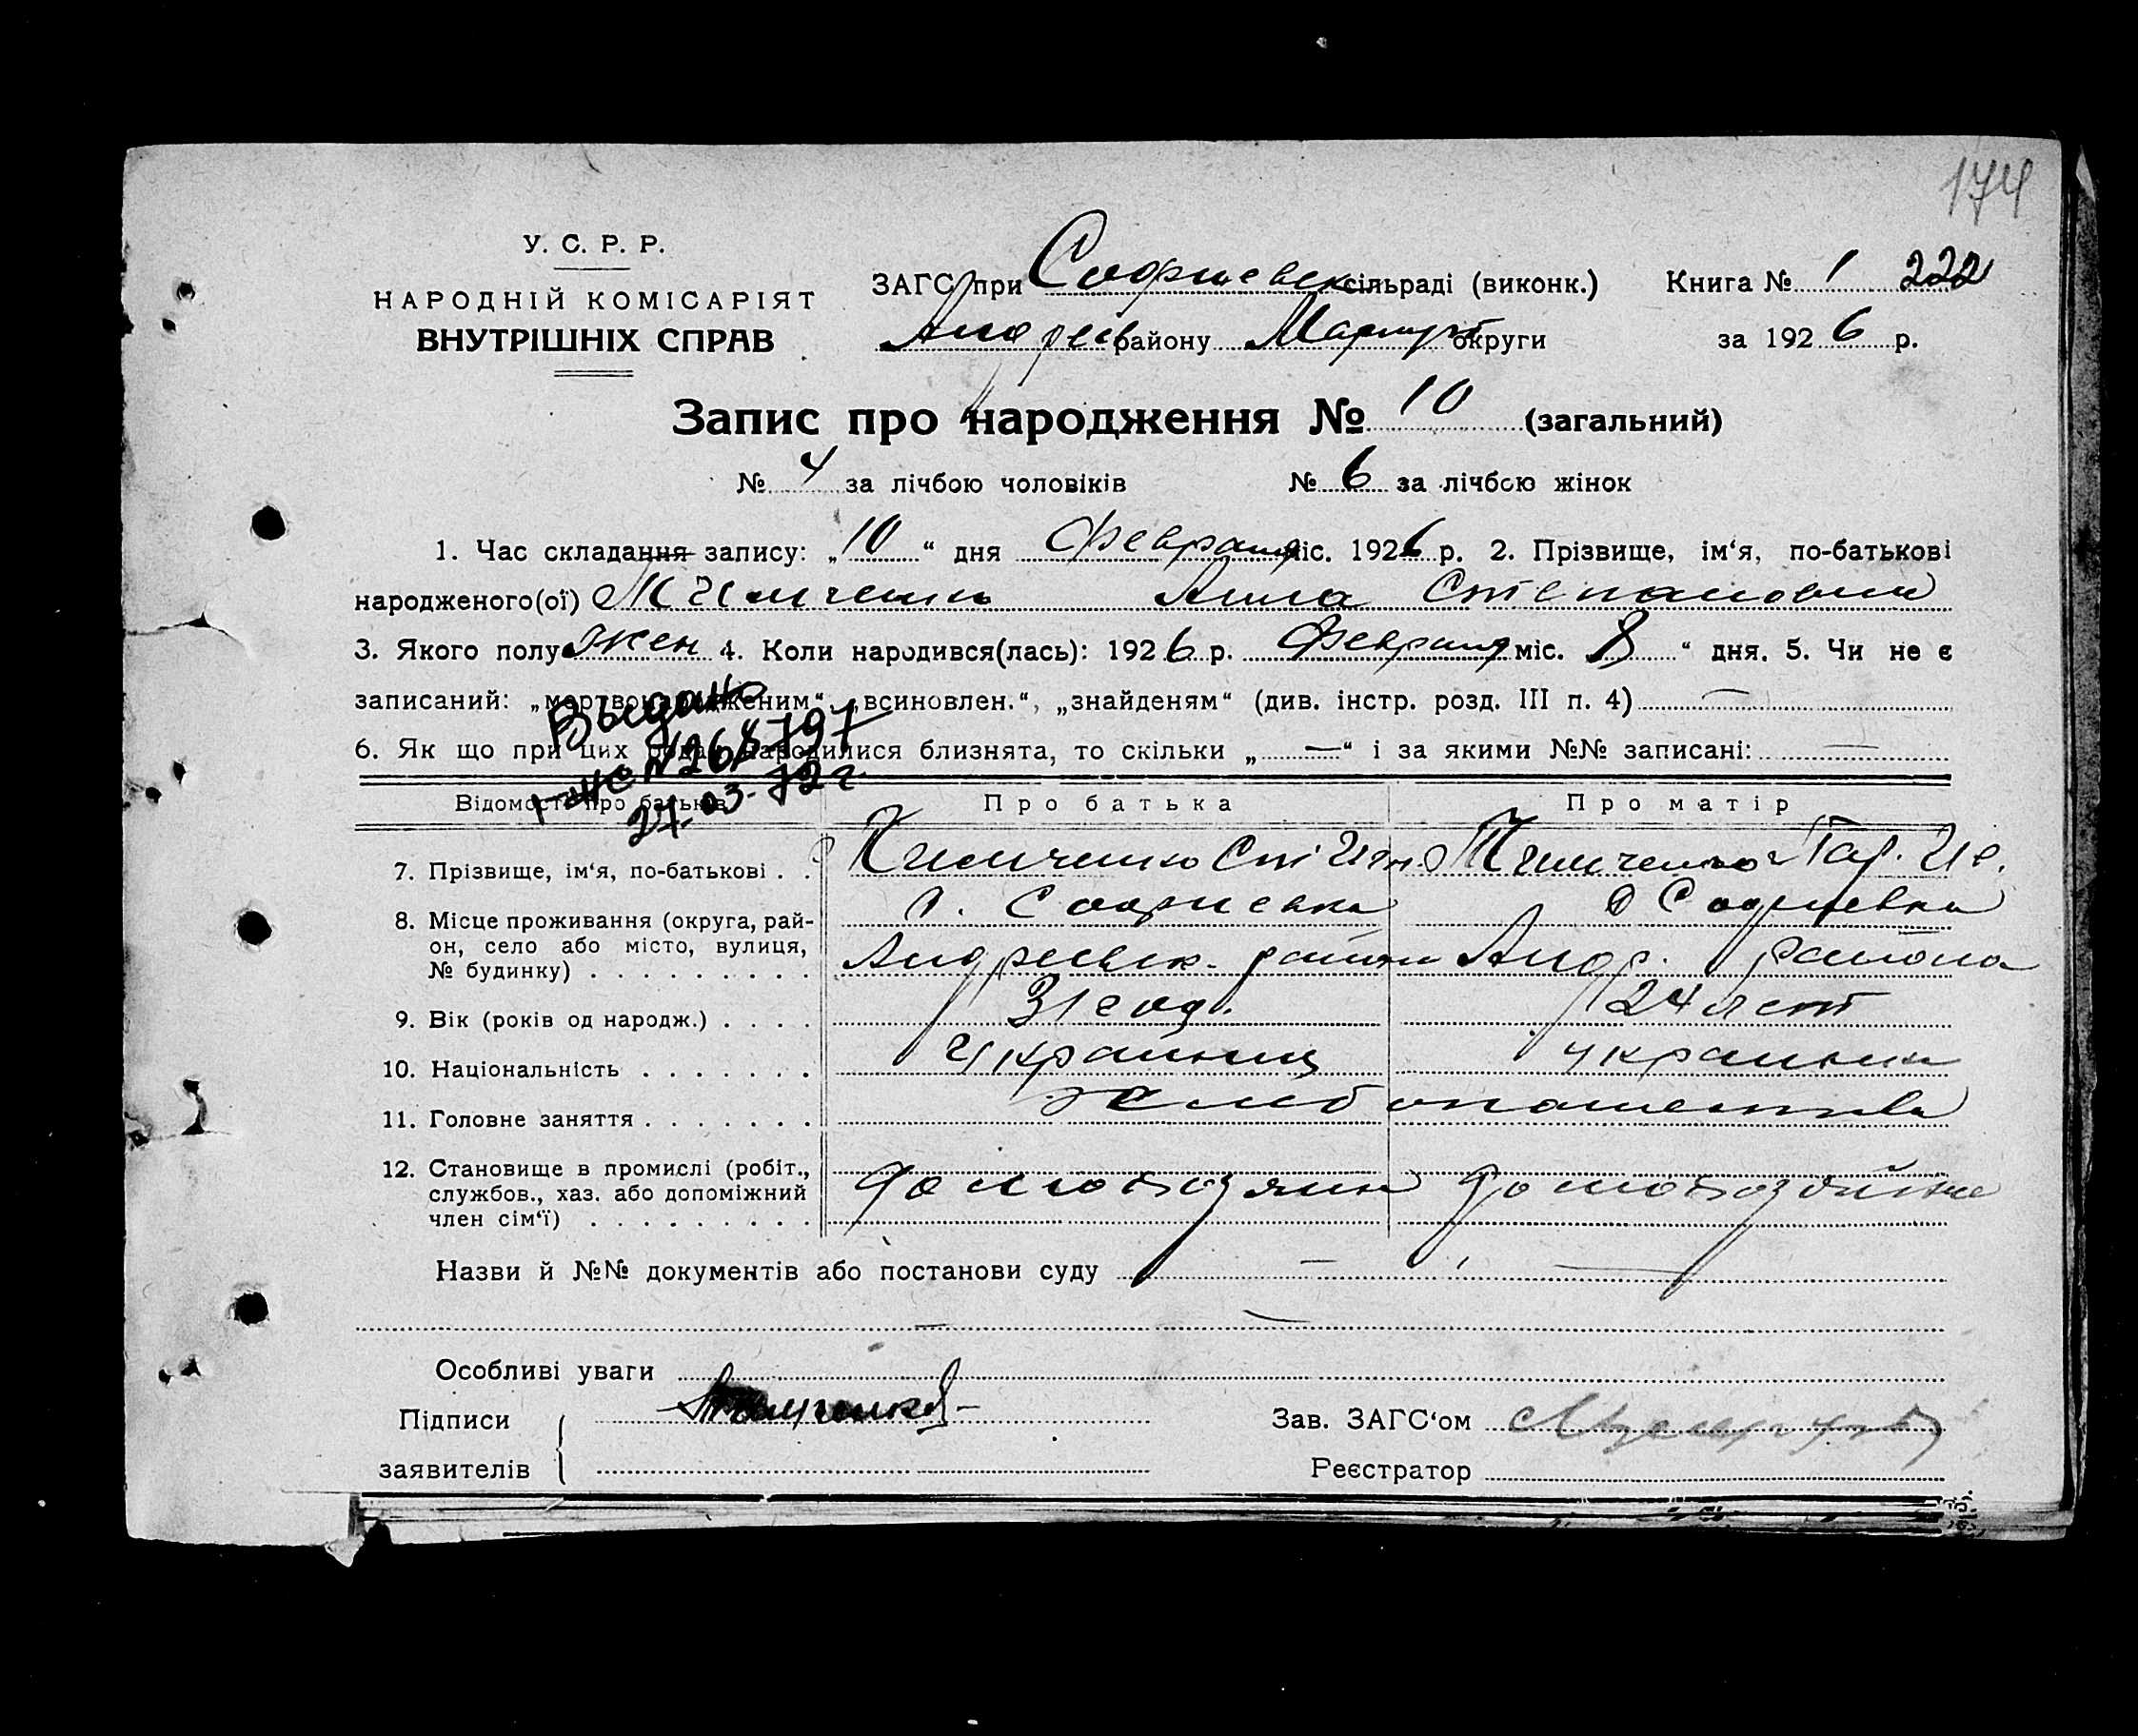 174
У. С. Р. Р.
НАРОДНІЙ КОМІСАРІЯТ
ВНУТРІШНІХ СПРАВ
ЗАГС при Софиевск сільраді (виконк.) Книга № 1 222
Андреев району Мариуп округи за 1926 р.
Запис про народження № 10 (загальний)
№ 4 за лічбою чоловіків № 6 за лічбою жінок
1. Час складання запису: „10“ дня Февраля міс. 1926 р. 2. Прізвище, ім‘я, по-батькові
народженого(ої) Анна Степановна
3. Якого полу жен 4. Коли народився(лась): 1926 р. Февраля міс. 8 “ дня. 5. Чи не є
записаний: „мертвонародженим“, „всиновлен.“, „знайденям“ (див. інстр. розд. III п. 4) —
6. Як що при цих родах народилися близнята, то скільки „—“ і за якими №№ записані: —
Выдано
№268797
27.03.72 г.
Відомості про батьків Про батька Про матір
7. Прізвище, ім‘я, по-батькові . . Тимченко Тимченко
8. Місце проживання (округа, рай- с. Софиевка с Софиевка
он, село або місто, вулиця, Андреевск. района Андр. района
№ будинку) . . . . . . . . .
9. Вік (років од народж.) . . . . 31 год. 24 лет
10. Національність . . . . . . . украинец украинка
11. Головне заняття . . . . . . . хлебопашество
12. Становище в промислі (робіт.,
службов., хаз. або допоміжний домохозяин домохозяйка
член сім‘ї) . . . . . . . . .
Назви й №№ документів або постанови суду — —
Особливі уваги
Підписи Тимченко Зав. ЗАГС‘ом
заявителів Реєстратор